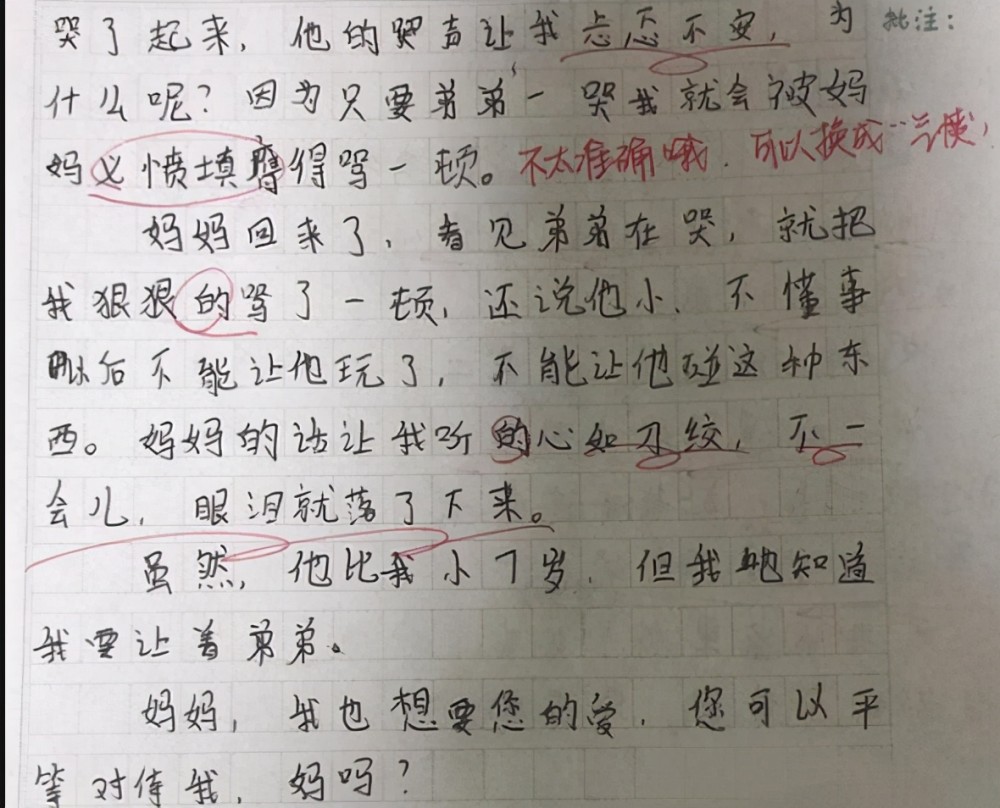 哭了起来，他的哭声让我忐忑不安，为
批注：
什么呢？因为只要弟弟一哭我就会被妈
妈义愤填膺得骂一顿。不太准确哦．可以换成
妈妈回来了，看见弟弟在哭，就把
我狠狠的骂了一顿，还说他小、不懂事
以后不能让他玩了，不能让他碰这种东
西。妈妈的话让我听的心如刀绞，不一
会儿，眼泪就落了下来。
虽然，他比我小7岁，但我也知道
我要让着弟弟。
妈妈，我也想要您的爱，您可以平
等对待我，妈吗？